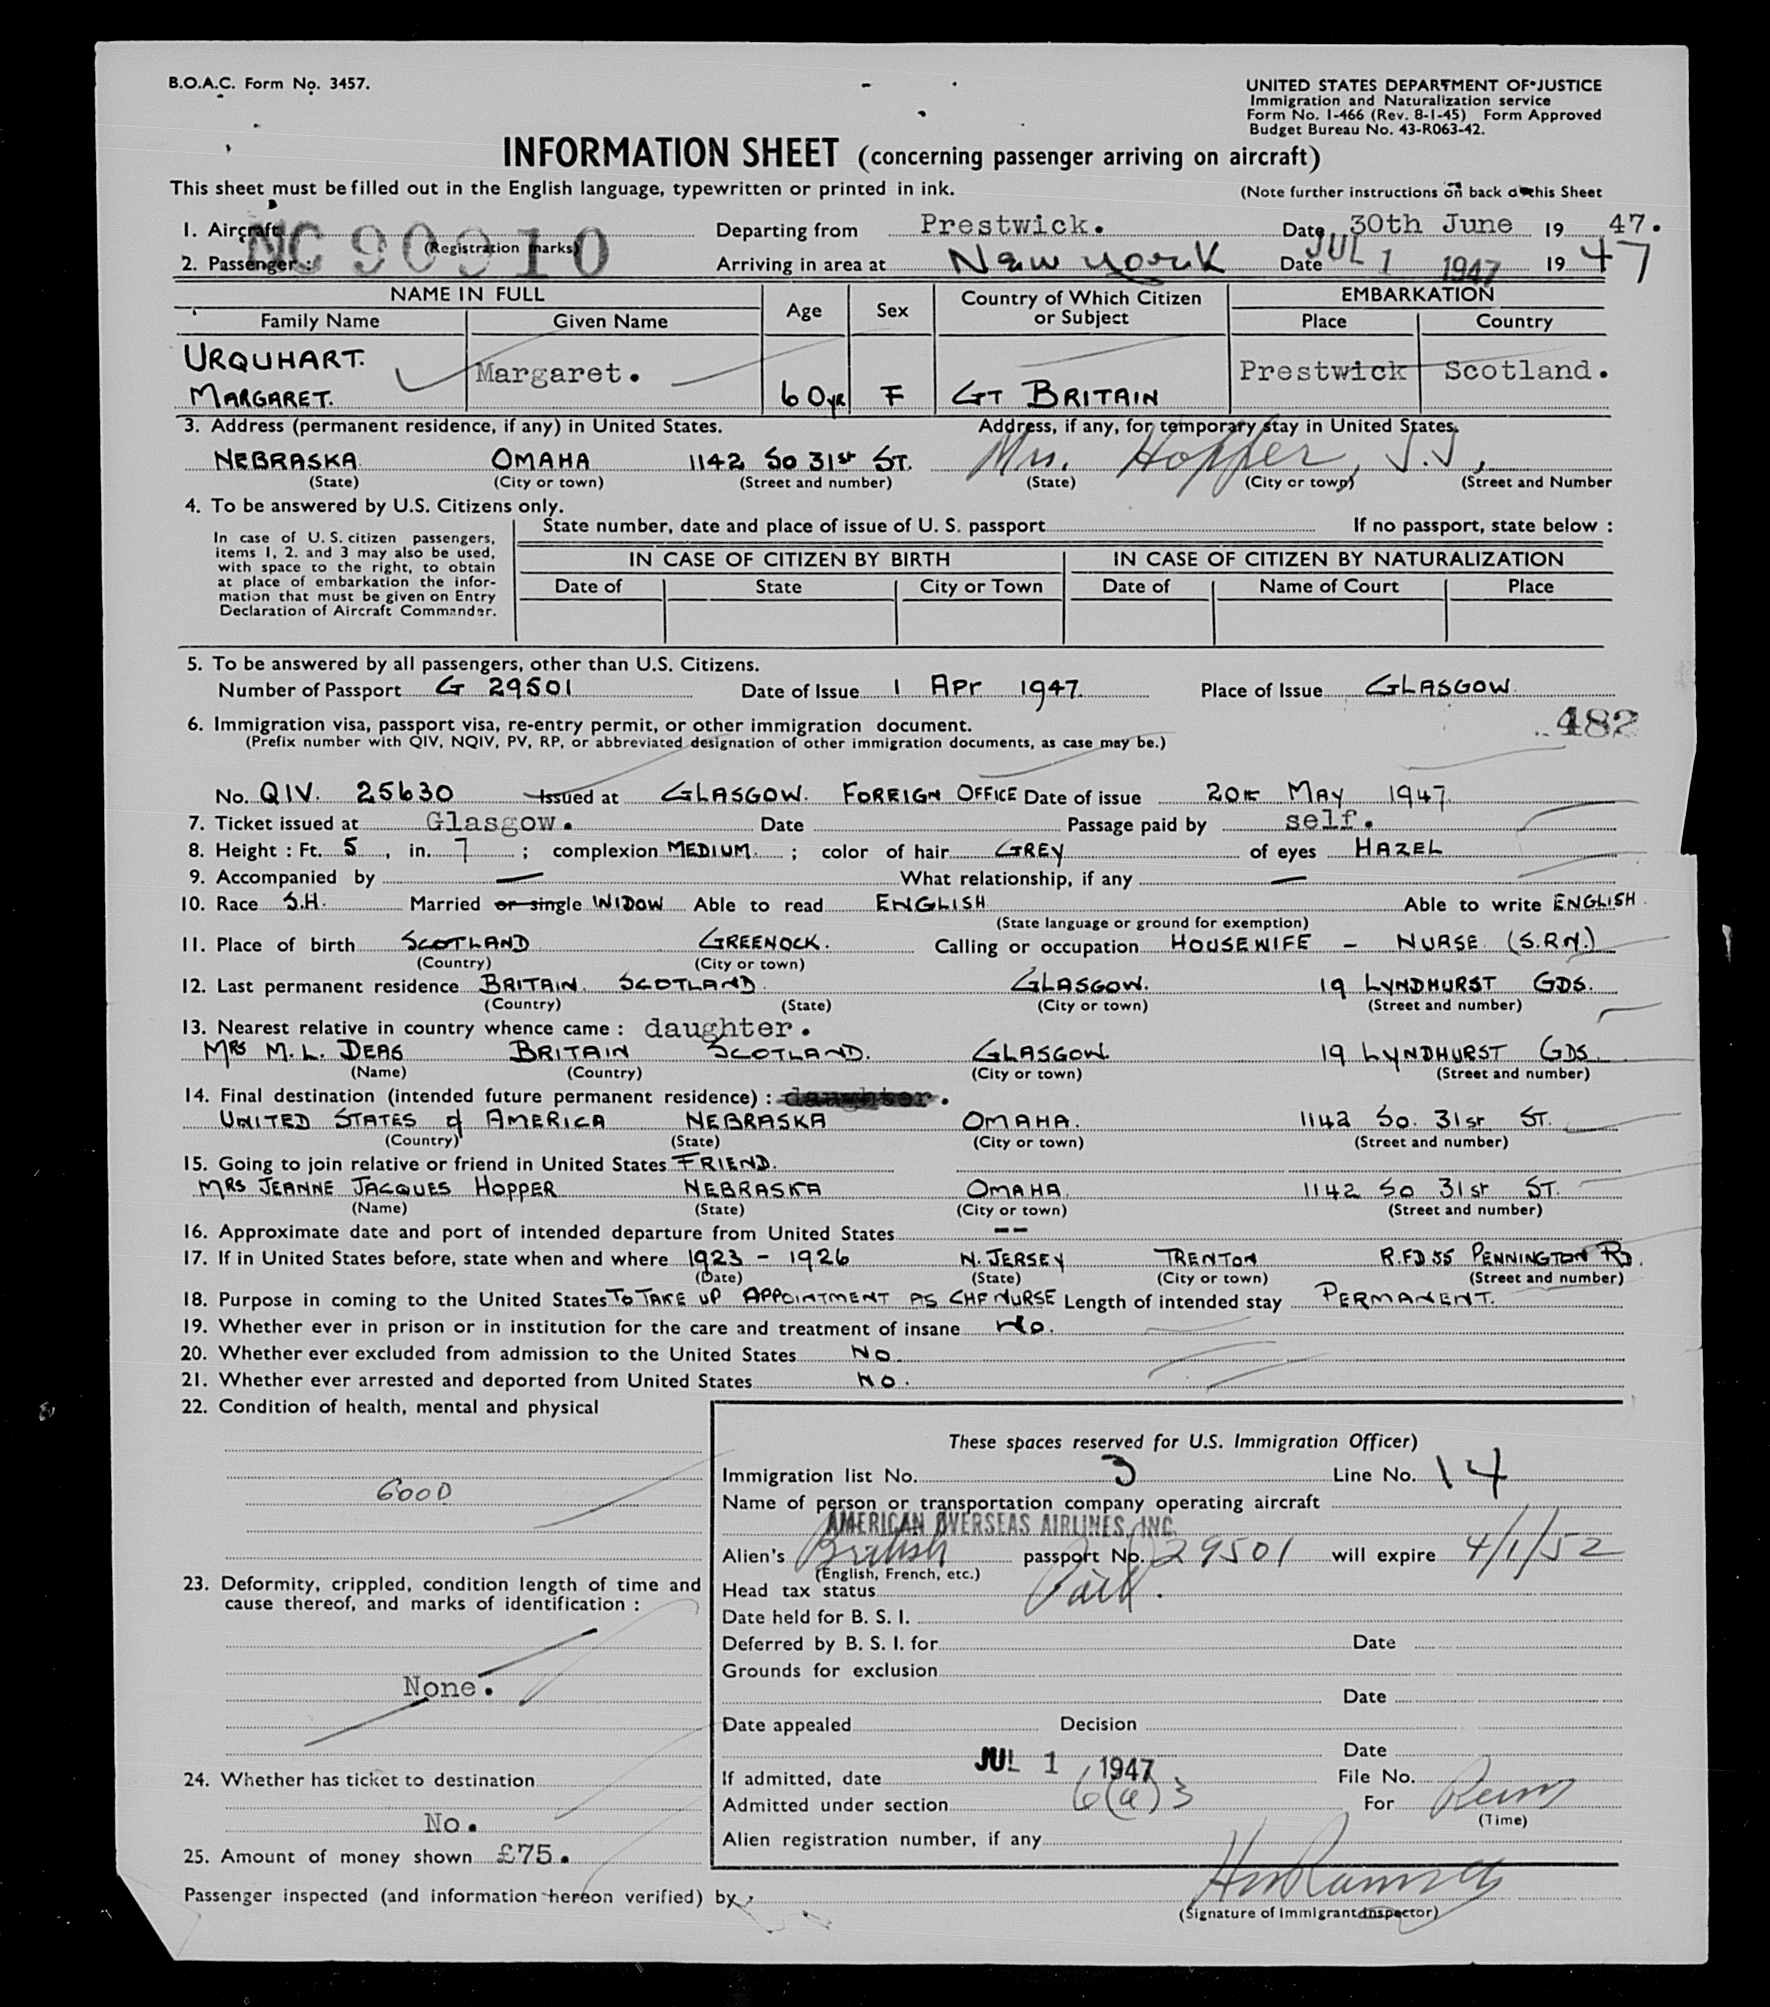 B.O.A.C. Form No. 3457.
UNITED STATES DEPARTMENT OF JUSTICE
Immigration and Naturalization service
Form No. I-466 (Rev. 8-1-45) Form Approved
Budget Bureau No. 43-R063-42.
INFORMATION SHEET (concerning passenger arriving on aircraft)
This sheet must be filled out in the English language, typewritten or printed in ink. (Note further instructions on back of this Sheet
1. Aircraft NC 90910 (Registration marks) Departing from Prestwick. Date 30th June 19 47.
2. Passenger: Arriving in area at New York Date JUL 1 1947 19 47
NAME IN FULL Age Sex Country of Which Citizen or Subject EMBARKATION
Family Name Given Name Place Country
URQUHART. Margaret. Prestwick Scotland.
MARGARET. 60yr F GT BRITAIN
3. Address (permanent residence, if any) in United States. Address, if any, for temporary stay in United States.
NEBRASKA OMAHA 1142 So 31st ST. Mrs. Hopper, J.J,
(State) (City or town) (Street and number) (State) (City or town) (Street and Number
4. To be answered by U.S. Citizens only.
State number, date and place of issue of U. S. passport If no passport, state below :
In case of U. S. citizen passengers,
items 1, 2. and 3 may also be used,
with space to the right, to obtain
at place of embarkation the infor-
mation that must be given on Entry
Declaration of Aircraft Commander.
IN CASE OF CITIZEN BY BIRTH IN CASE OF CITIZEN BY NATURALIZATION
Date of State City or Town Date of Name of Court Place
5. To be answered by all passengers, other than U.S. Citizens.
Number of Passport G 29501 Date of Issue 1 Apr 1947. Place of Issue GLASGOW.
6. Immigration visa, passport visa, re-entry permit, or other immigration document.
482
(Prefix number with QIV, NQIV, PV, RP, or abbreviated designation of other immigration documents, as case may be.)
No. QIV. 25630 Issued at GLASGOW. FOREIGN OFFICE Date of issue 20th MAY 1947.
7. Ticket issued at Glasgow. Date Passage paid by self.
8. Height : Ft. 5, in. 7 ; complexion MEDIUM. ; color of hair GREY of eyes HAZEL
9. Accompanied by — What relationship, if any —
10. Race S.H. Married or single WIDOW Able to read ENGLISH Able to write ENGLISH.
(State language or ground for exemption)
11. Place of birth SCOTLAND GREENOCK. Calling or occupation HOUSEWIFE - NURSE (S.R.N.)
(Country) (City or town)
12. Last permanent residence BRITAIN. SCOTLAND. GLASGOW. 19 LYNDHURST GDS.
(Country) (State) (City or town) (Street and number)
13. Nearest relative in country whence came : daughter.
MRS M. L. DEAS BRITAIN SCOTLAND. GLASGOW. 19 LYNDHURST GDS.
(Name) (Country) (City or town) (Street and number)
14. Final destination (intended future permanent residence) : daughter.
UNITED STATES of AMERICA NEBRASKA OMAHA. 1142 So. 31st ST.
(Country) (State) (City or town) (Street and number)
15. Going to join relative or friend in United States FRIEND.
MRS JEANNE JACQUES HOPPER NEBRASKA OMAHA. 1142 So 31st ST.
(Name) (State) (City or town) (Street and number)
16. Approximate date and port of intended departure from United States --
17. If in United States before, state when and where 1923 - 1926 N. JERSEY TRENTON R.F.D 55 PENNINGTON RD.
(Date) (State) (City or town) (Street and number)
18. Purpose in coming to the United States TO TAKE UP APPOINTMENT AS CHF NURSE Length of intended stay PERMANENT.
19. Whether ever in prison or in institution for the care and treatment of insane No.
20. Whether ever excluded from admission to the United States No.
21. Whether ever arrested and deported from United States No.
22. Condition of health, mental and physical
GOOD
23. Deformity, crippled, condition length of time and
cause thereof, and marks of identification :
None.
24. Whether has ticket to destination
No.
25. Amount of money shown £75.
These spaces reserved for U.S. Immigration Officer)
Immigration list No. 3 Line No. 14
Name of person or transportation company operating aircraft
AMERICAN OVERSEAS AIRLINES, INC.
Alien's British passport No. 29501 will expire 4/1/52
(English, French, etc.)
Head tax status Paid.
Date held for B. S. I.
Deferred by B. S. I. for Date
Grounds for exclusion
Date
Date appealed Decision
Date
If admitted, date JUL 1 1947 File No.
Admitted under section 6(a)3 For Perm
(Time)
Alien registration number, if any
Passenger inspected (and information hereon verified) by
(Signature of Immigrant Inspector)